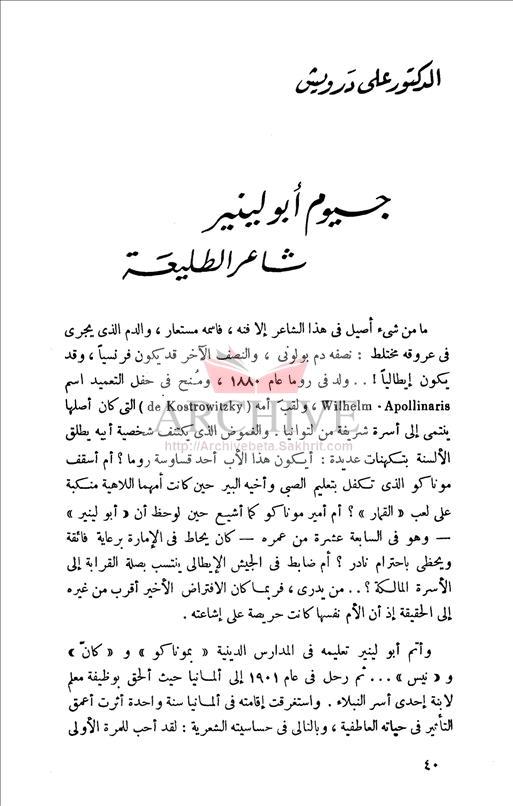 الدكتور على درويش
جيوم أبو لينير
شاعر الطليعة
ما من شىء أصيل فى هذا الشاعر إلا فنه ، فاسمه مستعار ، والدم الذى يجرى
فى عروقه مختلط : نصفه دم بولونى ، والنصف الآخر قد يكون فرنسياً ، وقد
يكون إيطالياً ! . . ولد فى روما عام ١٨٨٠ ، ومنح فى حفل التعميد اسم
Wilhelm - Apollinaris ، ولقب أمه ( de Kostrowitzky ) التى كان أصلها
ينتمى إلى أسرة شريفة من لتوانيا . والغموض الذى يكتنف شخصية أبيه يطلق
الألسنة بتكهنات عديدة : أيكون هذا الأب أحد قساوسة روما ؟ أم أسقف
موناكو الذى تكفل بتعليم الصبى وأخيه البير حين كانت أمهما اللاهية منكبة
على لعب « القمار » ؟ أم أمير موناكو كما أشيع حين لوحظ أن « أبو لينير »
— وهو فى السابعة عشرة من عمره — كان يحاط فى الإمارة برعاية فائقة
ويحظى باحترام نادر ؟ أم ضابط فى الجيش الإيطالى ينتسب بصلة القرابة إلى
الأسرة المالكة ؟ . . من يدرى ، فربما كان الافتراض الأخير أقرب من غيره
إلى الحقيقة إذ أن الأم نفسها كانت حريصة على إشاعته .
وأتم أبو لينير تعليمه فى المدارس الدينية « بموناكو » و « كانّ »
و « نيس » . . . ثم رحل فى عام ١٩٠١ إلى ألمانيا حيث ألحق بوظيفة معلم
لابنة إحدى أسر النبلاء . واستغرقت إقامته فى ألمانيا سنة واحدة أثرت أعمق
التأثير فى حياته العاطفية ، وبالتالى فى حساسيته الشعرية : لقد أحب للمرة الأولى
٤٠
ARCHIVE
http://Archivebeta.Sakhrit.com